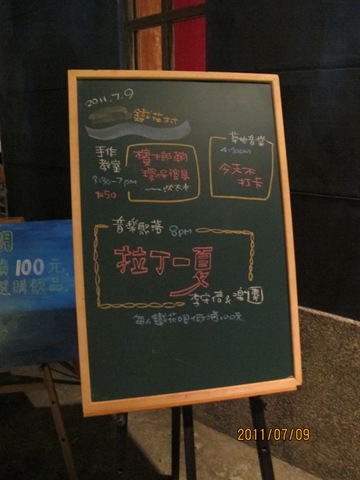 2011.7.9
鐵花村
手作
教室
3:30-7pm
$150
檳榔鞘
環保餐具
草地音樂
4:30pm
今天不
打卡
音樂熙舞 8pm
拉丁一夏
李守信&樂團
每人鐵花吧低消100元
100元
選購飲品
2011/07/09